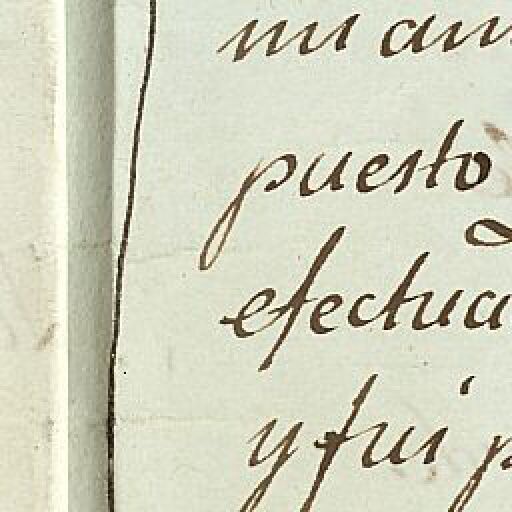 mi am
puesto
efectua
y fui p